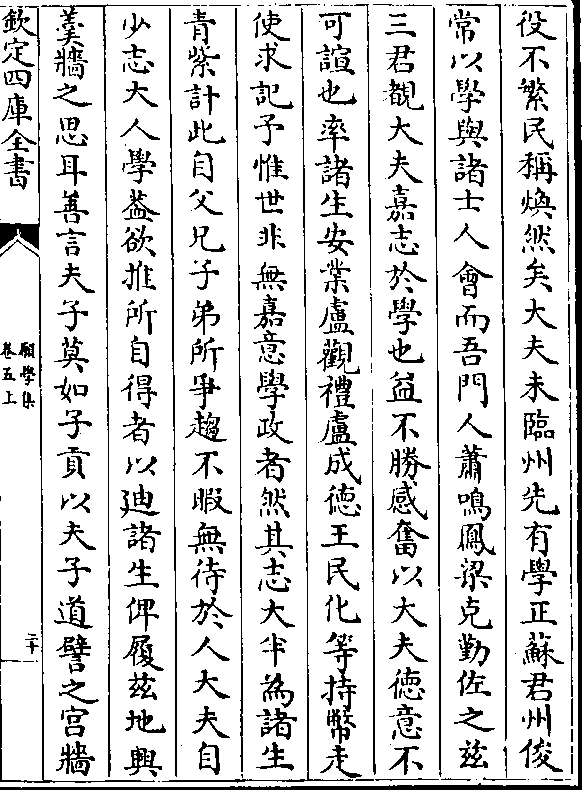 役不繁民稱煥然矣大夫未臨州先有學正蘇君州俊
常以學與諸士人會而吾門人蕭鳴鳳梁克勤佐之兹
三君覩大夫嘉志於學也益不勝感奮以大夫徳意不
可諠也率諸生安業盧觀禮盧成德王民化等持幣走
使求記予惟世非無嘉意學政者然其志大半為諸生
青紫計此自父兄子弟所爭趨不暇無待於人大夫自
少志大人學葢欲推所自得者以廸諸生俾履兹地興
羹牆之思耳善言夫子莫如子貢以夫子道譬之宫牆
欽定四庫全書
願學集
卷五上
二十